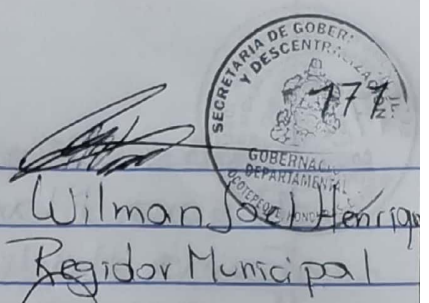 SECRETARIA DE GOBER
Y DESCENTRALIZACIÓN
177
GOBERNAC
DEPARTAMENTAL
OCOTEPEQUE HONDU
Wilman Joel Henriq
Regidor Municipal